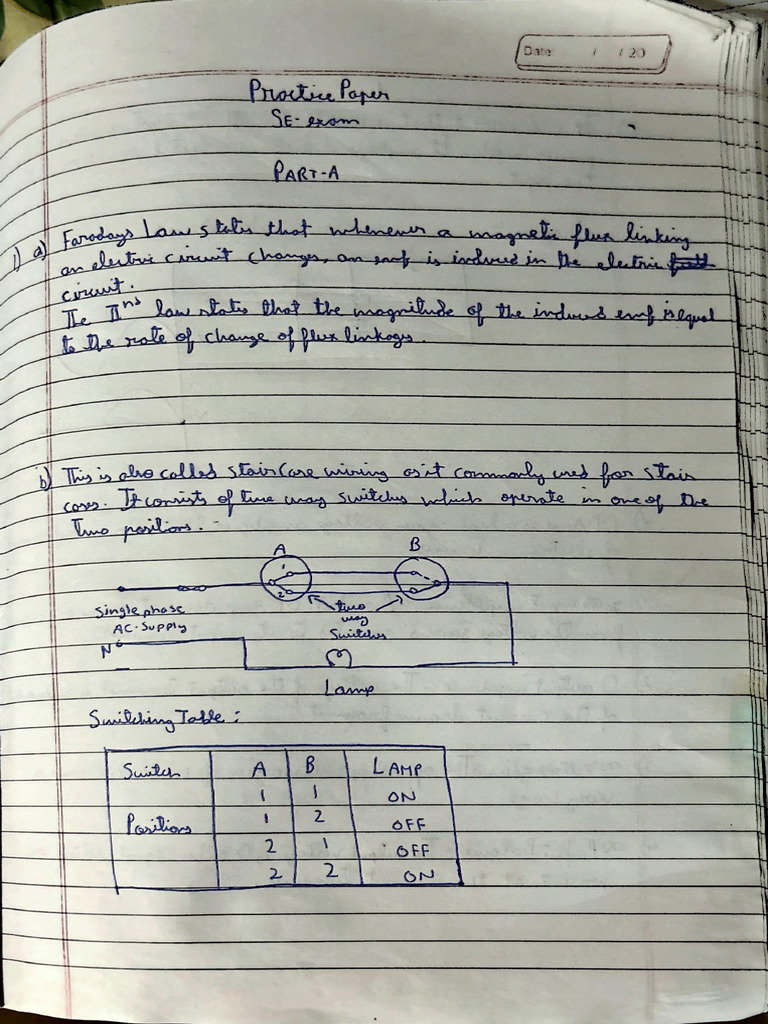 Date / / 20
Practice Paper
SE-exam
PART-A
1) a) Faradays Law states that whenever a magnetic flux linking
an electric circuit changes, an emf is induced in the electric
circuit.
The IInd law states that the magnitude of the induced emf is equal
to the rate of change of flux linkages.
b) This is also called staircase wiring as it commonly used for stair
cases. It consists of two way switches which operate in one of the
two positions.
A B
1
2
Single phase
AC-Supply
two
way
Switches
N
Lamp
Switching Table :
Switch A B LAMP
1 1 ON
Positions 1 2 OFF
2 1 OFF
2 2 ON